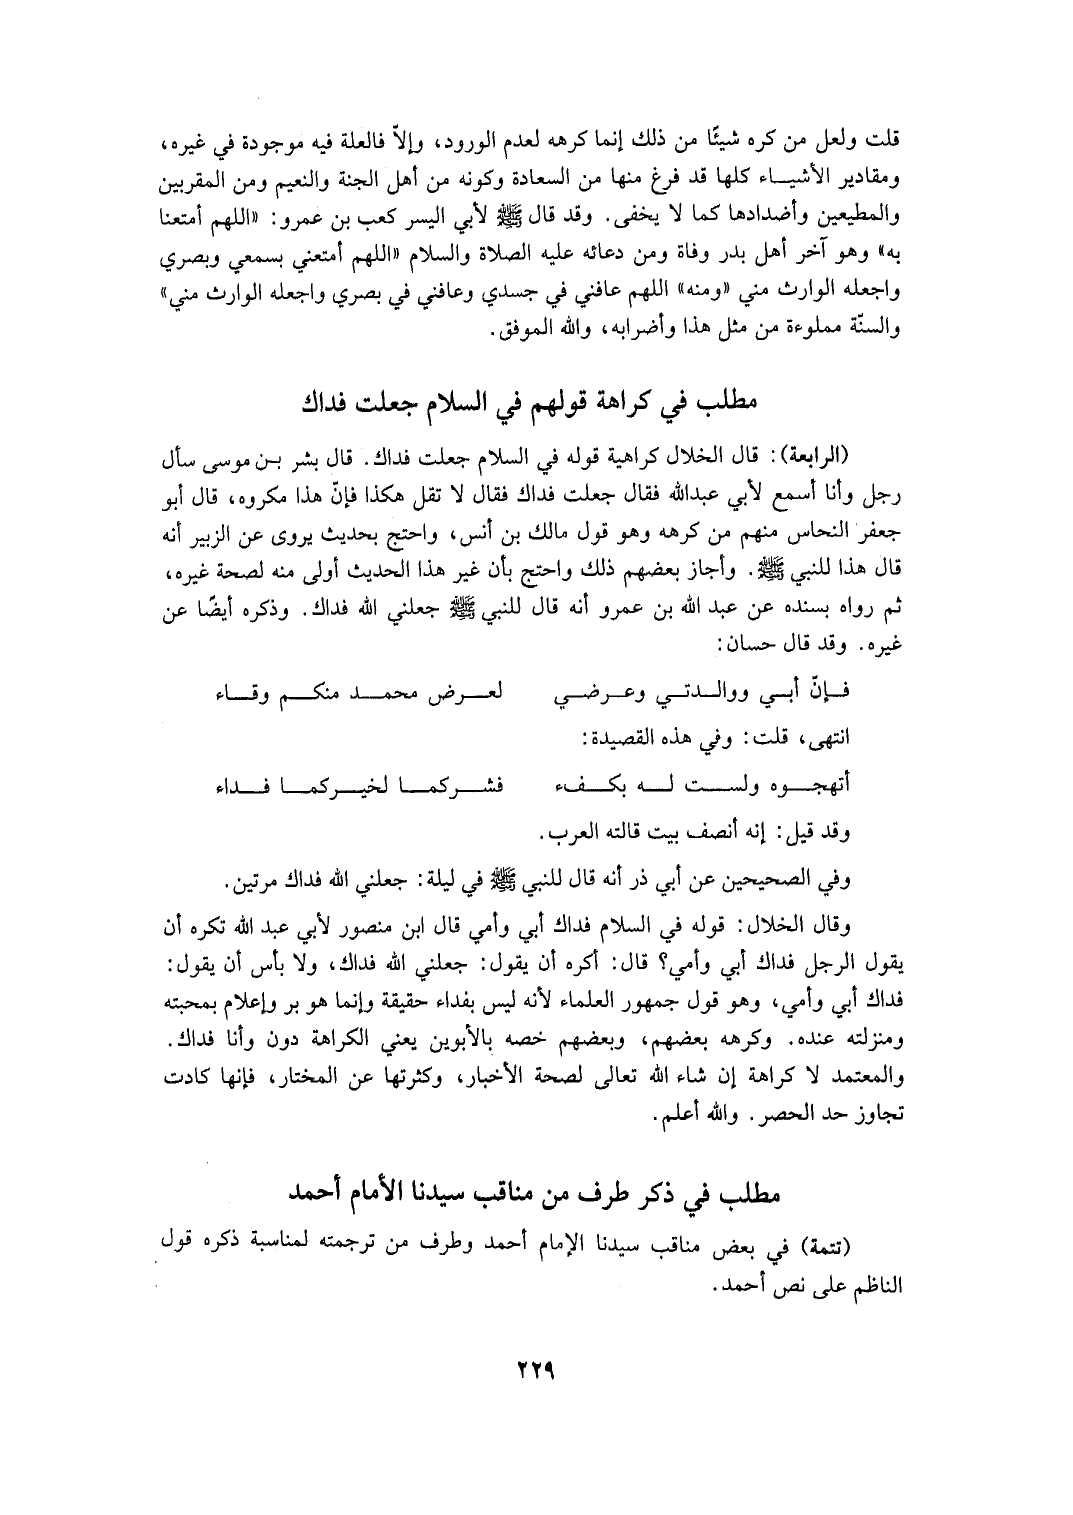 قلت ولعل من كره شيئًا من ذلك إنما كرهه لعدم الورود، وإلاّ فالعلة فيه موجودة في غيره،
ومقادير الأشيـاء كلها قد فرغ منها من السعادة وكونه من أهل الجنة والنعيم ومن المقربين
والمطيعين وأضدادها كما لا يخفى. وقد قال ﷺ لأبي اليسر كعب بن عمرو: «اللهم أمتعنا
به» وهو آخر أهل بدر وفاة ومن دعائه عليه الصلاة والسلام «اللهم أمتعني بسمعي وبصري
واجعله الوارث مني «ومنه» اللهم عافني في جسدي وعافني في بصري واجعله الوارث مني»
والسنّة مملوءة من مثل هذا وأضرابه، والله الموفق.
مطلب في كراهة قولهم في السلام جعلت فداك
(الرابعة): قال الخلال كراهية قوله في السلام جعلت فداك. قال بشر بـن موسى سأل
رجل وأنا أسمع لأبي عبدالله فقال جعلت فداك فقال لا تقل هكذا فإنّ هذا مكروه، قال أبو
جعفر النحاس منهم من كرهه وهو قول مالك بن أنس، واحتج بحديث يروى عن الزبير أنه
قال هذا للنبي ﷺ. وأجاز بعضهم ذلك واحتج بأن غير هذا الحديث أولى منه لصحة غيره،
ثم رواه بسنده عن عبد الله بن عمرو أنه قال للنبي ﷺ جعلني الله فداك. وذكره أيضًا عن
غيره. وقد قال حسان:
فـإنّ أبـي ووالـدتـي وعـرضـي لعـرض محمـد منكـم وقـاء
انتهى، قلت: وفي هذه القصيدة:
أتهجـوه ولسـت لـه بكـفء فشـركمـا لخيـركمـا فـداء
وقد قيل: إنه أنصف بيت قالته العرب.
وفي الصحيحين عن أبي ذر أنه قال للنبي ﷺ في ليلة: جعلني الله فداك مرتين.
وقال الخلال: قوله في السلام فداك أبي وأمي قال ابن منصور لأبي عبد الله تكره أن
يقول الرجل فداك أبي وأمي؟ قال: أكره أن يقول: جعلني الله فداك، ولا بأس أن يقول:
فداك أبي وأمي، وهو قول جمهور العلماء لأنه ليس بفداء حقيقة وإنما هو بر وإعلام بمحبته
ومنزلته عنده. وكرهه بعضهم، وبعضهم خصه بالأبوين يعني الكراهة دون وأنا فداك.
والمعتمد لا كراهة إن شاء الله تعالى لصحة الأخبار، وكثرتها عن المختار، فإنها كادت
تجاوز حد الحصر. والله أعلم.
مطلب في ذكر طرف من مناقب سيدنا الأمام أحمد
(تتمة) في بعض مناقب سيدنا الإمام أحمد وطرف من ترجمته لمناسبة ذكره قول
الناظم على نص أحمد.
٢٢٩